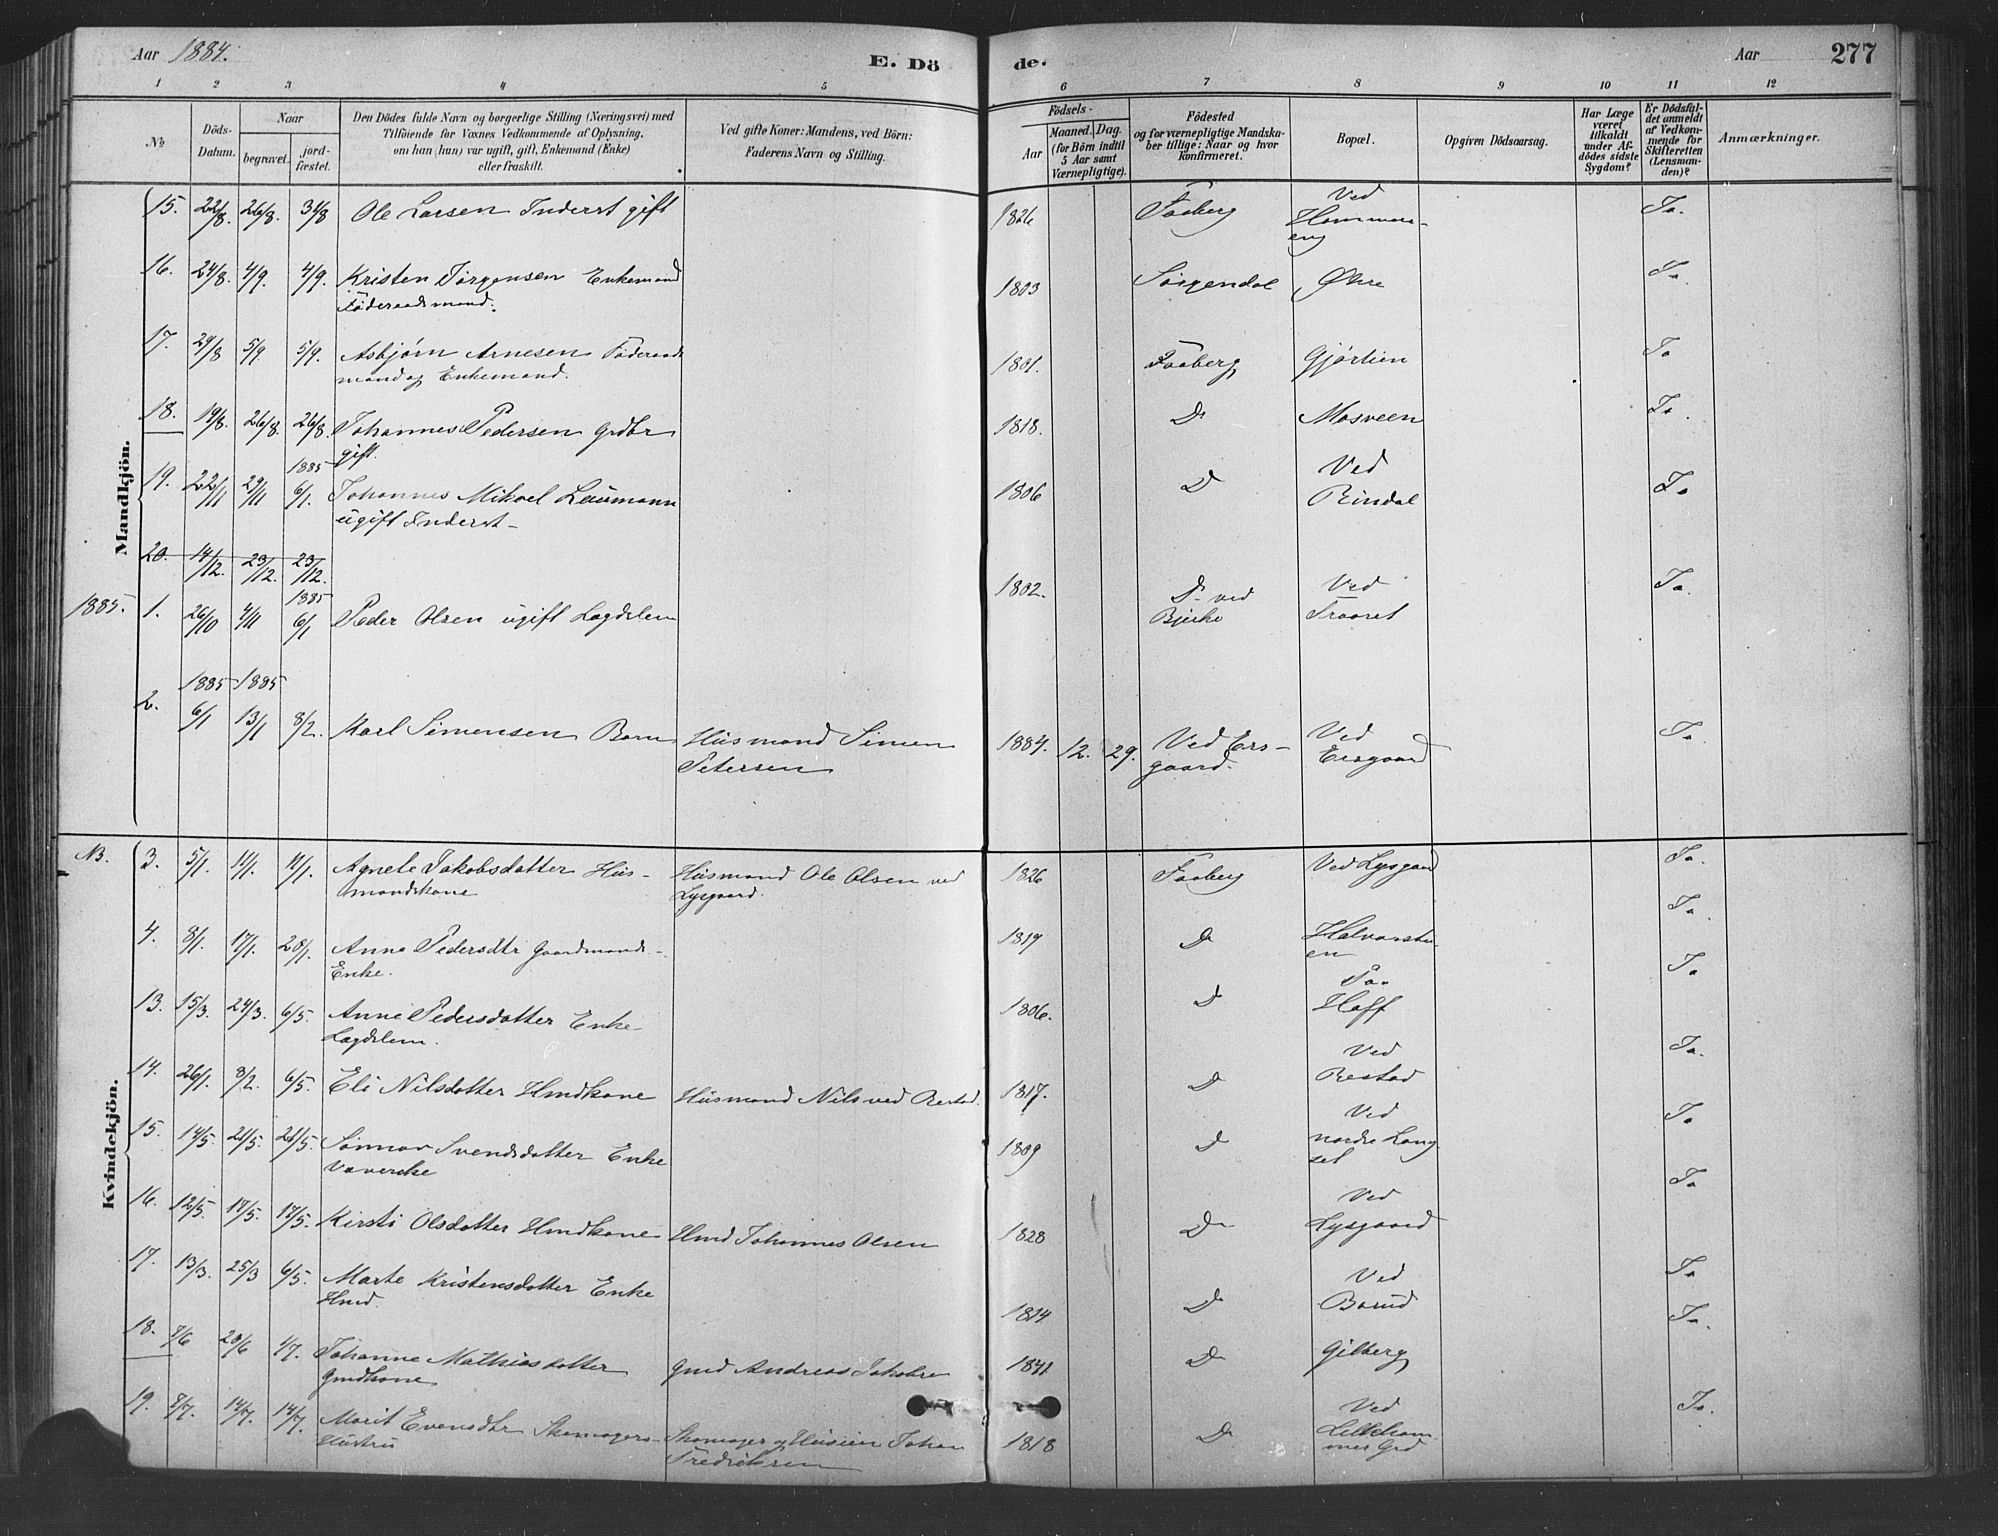 Aar 1884. E. Dö de. Aar 277
1 2 3 4 5 6 7 8 9 10 11 12
No
Döds-Datum.
Naar
begravet.
jord-fæstet.
Den Dödes fulde Navn og borgerlige Stilling (Næringsvei) med
Tilföiende for Voxnes Vedkommende af Oplysning,
om han (hun) var ugift, gift, Enkemand (Enke)
eller fraskilt.
Ved gifte Koner: Mandens, ved Börn:
Faderens Navn og Stilling.
Födsels-
Aar
Maaned. Dag.
(for Börn indtil
5 Aar samt
Værnepligtige).
Födested
og for værnepligtige Mandska-
ber tillige: Naar og hvor
konfirmeret.
Bopæl.
Opgiven Dödsaarsag.
Har Læge
været
tilkaldt
under Af-
dödes sidste
Sygdom?
Er Dödsfal-
det anmeldt
af Vedkom-
mende for
Skifteretten
(Lensman-
den)?
Anmærkninger.
Mandkjön.
15. 22/8 26/8. 31/8 Ole Larsen Inderst gift 1826 Faaberg Ved Ja.
Hammers-
eng
16. 24/8. 4/9. 4/9. Kristen Jörgensen Enkemand 1803 Sörgendal Øhre Ja.
Föderaadsmand.
17. 29/8 5/9. 5/9. Asbjörn Arnesen Föderaads 1801. Faaberg Gjörlien Ja
mand og Enkemand.
18. 19/8. 26/8. 26/8. Johannes Pedersen Grdbr 1818. Do Mosveen Ja.
gift.
1885
19. 22/11 29/11 6/1. Johannes Mikael Laumann 1806 Do Ved Ja
ugift Inderst Rindal
20. 14/12. 23/12. 23/12.
1885
1885. 1. 26/10 4/11 6/1 Peder Olsen ugift Lægdslem 1802. Do ved Ved Ja.
Bjerke Traaset
1885 1885
2. 6/1 13/1 8/2. Karl Simensen Barn Husmand Simen 1884. 12. 29. Ved Ers- Ved Ja
Petersen gaard. Ersgaard
Kvindekjön.
NB. 3. 5/1. 11/1. 11/1. Agnete Jakobsdatter Hus- Husmand Ole Olsen ved 1826 Faaberg Ved Lysgaard Ja.
mandskone Lysgaard.
4. 8/1. 17/1. 28/1. Anne Pedersdtr Gaardmands- 1819 Do Halvorsve- Ja.
Enke. en
13. 15/3. 24/3. 6/5. Anne Pedersdatter Enke 1806. Do Paa Ja
Lægdslem. Hoff
14. 26/1. 8/2. 6/5. Eli Nilsdatter Hmdkone Husmand Nils ved Restad. 1817. Do Ved Ja.
Restad
15. 14/5. 21/5. 21/5. Sönnov Svendsdatter Enke 1809 Do Ved Ja
nordre Lang-
set
16. 12/5. 17/5. 17/5. Kirsti Olsdatter Hmdkone Hmd Johannes Olsen 1828 Do Ved Ja
Lysgaard
17. 13/3. 25/3 6/5. Marte Kristensdatter Enke 1814 Do Ved Ja
Hmd.
18. 7/6 20/6 1/7. Johanne Mathiasdatter Gmd Andreas Jakobsen 1841 Do Gilberg Ja.
Gmdkone
19. 7/7. 14/7. 14/7. Marit Evensdtr Skomagers- Skomager og Huseier Johan 1818 Do Ved Ja.
Hustru Fredriksen Lilleham-
mer Grd